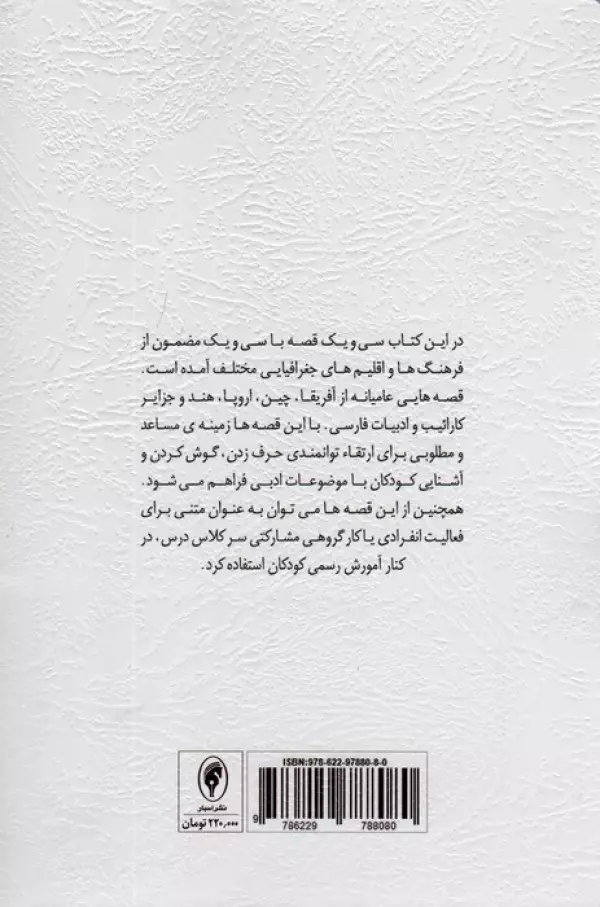 در این کتاب سی و یک قصه با سی و یک مضمون از
فرهنگ ها و اقلیم های جغرافیایی مختلف آمده است.
قصه هایی عامیانه از آفریقا، چین، اروپا، هند و جزایر
کارائیب و ادبیات فارسی. با این قصه ها زمینه ی مساعد
و مطلوبی برای ارتقاء توانمندی حرف زدن، گوش کردن و
آشنایی کودکان با موضوعات ادبی فراهم می شود.
همچنین از این قصه ها می توان به عنوان متنی برای
فعالیت انفرادی یا کار گروهی مشارکتی سر کلاس درس، در
کنار آمورش رسمی کودکان استفاده کرد.
ISBN:978-622-97880-8-0
9 786229 788080
نشر اسبار
۲۲۰,۰۰۰ تومان